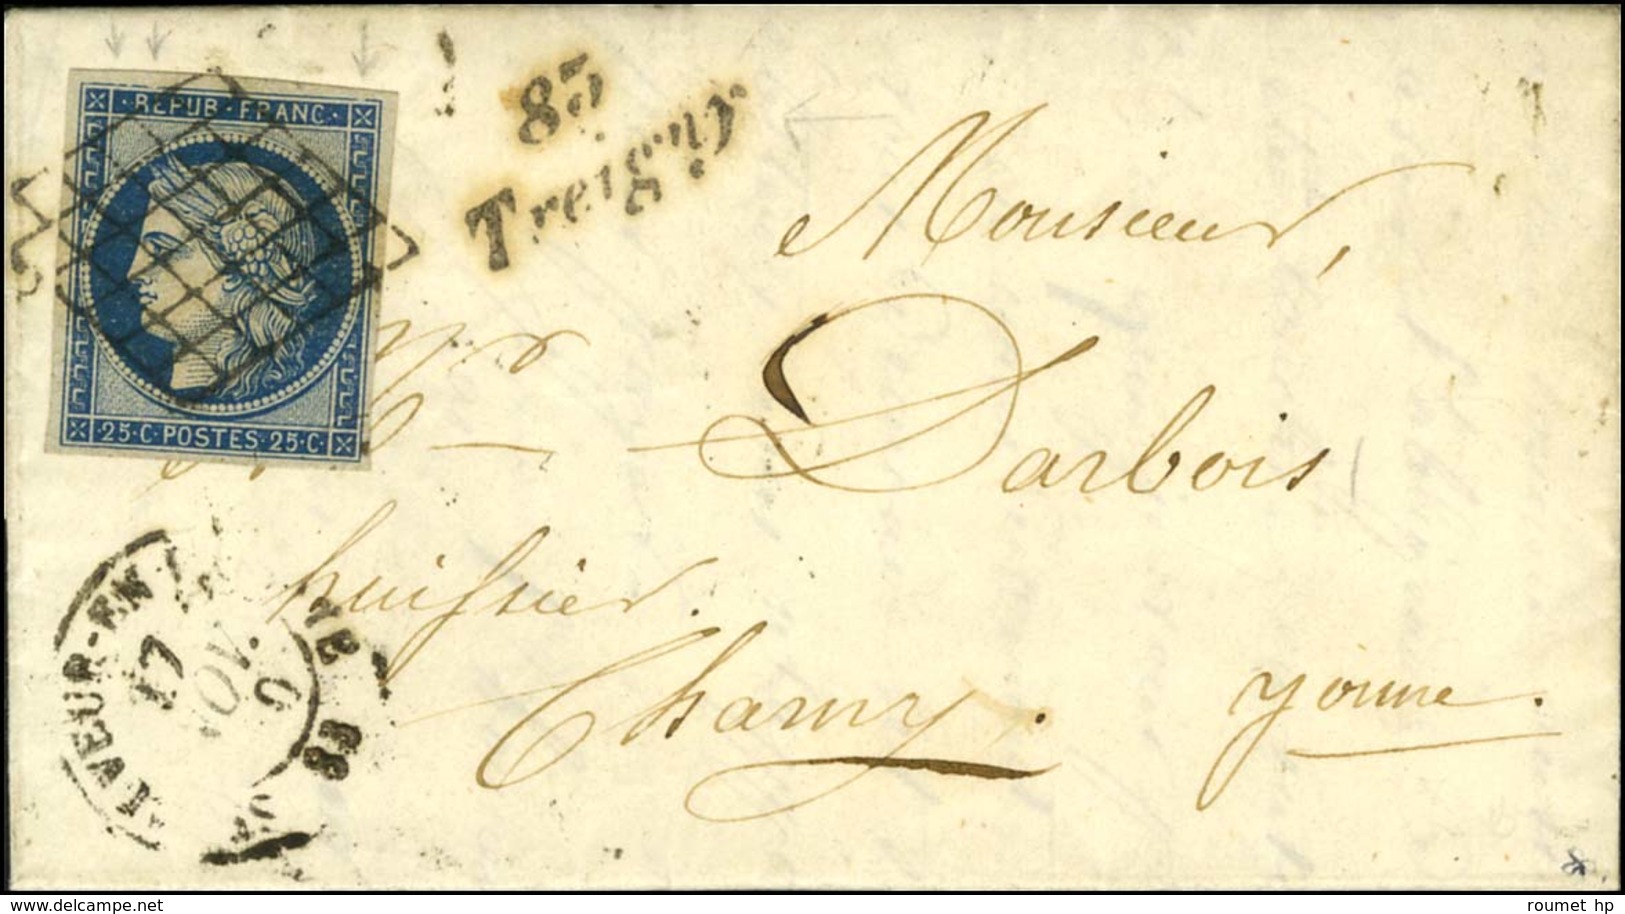 REPUB · FRANC ·
· 25 · C · POSTES · 25 · C ·
83
Treigny
Monsieur,
Darbois
huissier.
Chamy. yonne.
VEUR-EN-
17
NOV.
83
delcampe.net
roumet hp